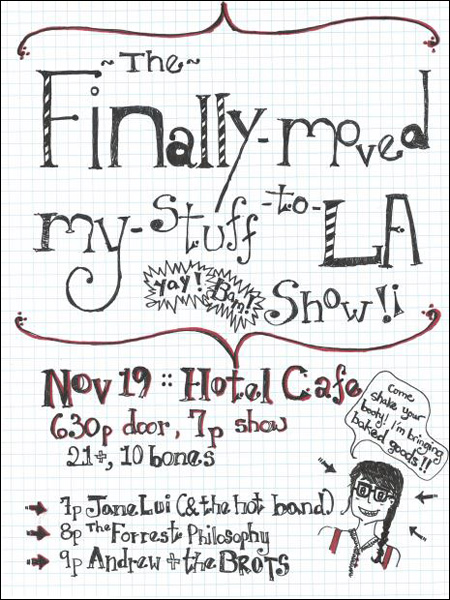 ~The~
Finally-moved
my-stuff-to-LA
yay! Bam! Show!¡
Nov 19 :: Hotel Cafe
630p door, 7p show
21+, 10 bones
come
shake your
booty! I'm bringing
baked goods!!
7p Jane Lui (& the hot band)
8p The Forrest Philosophy
9p Andrew + the BROTS